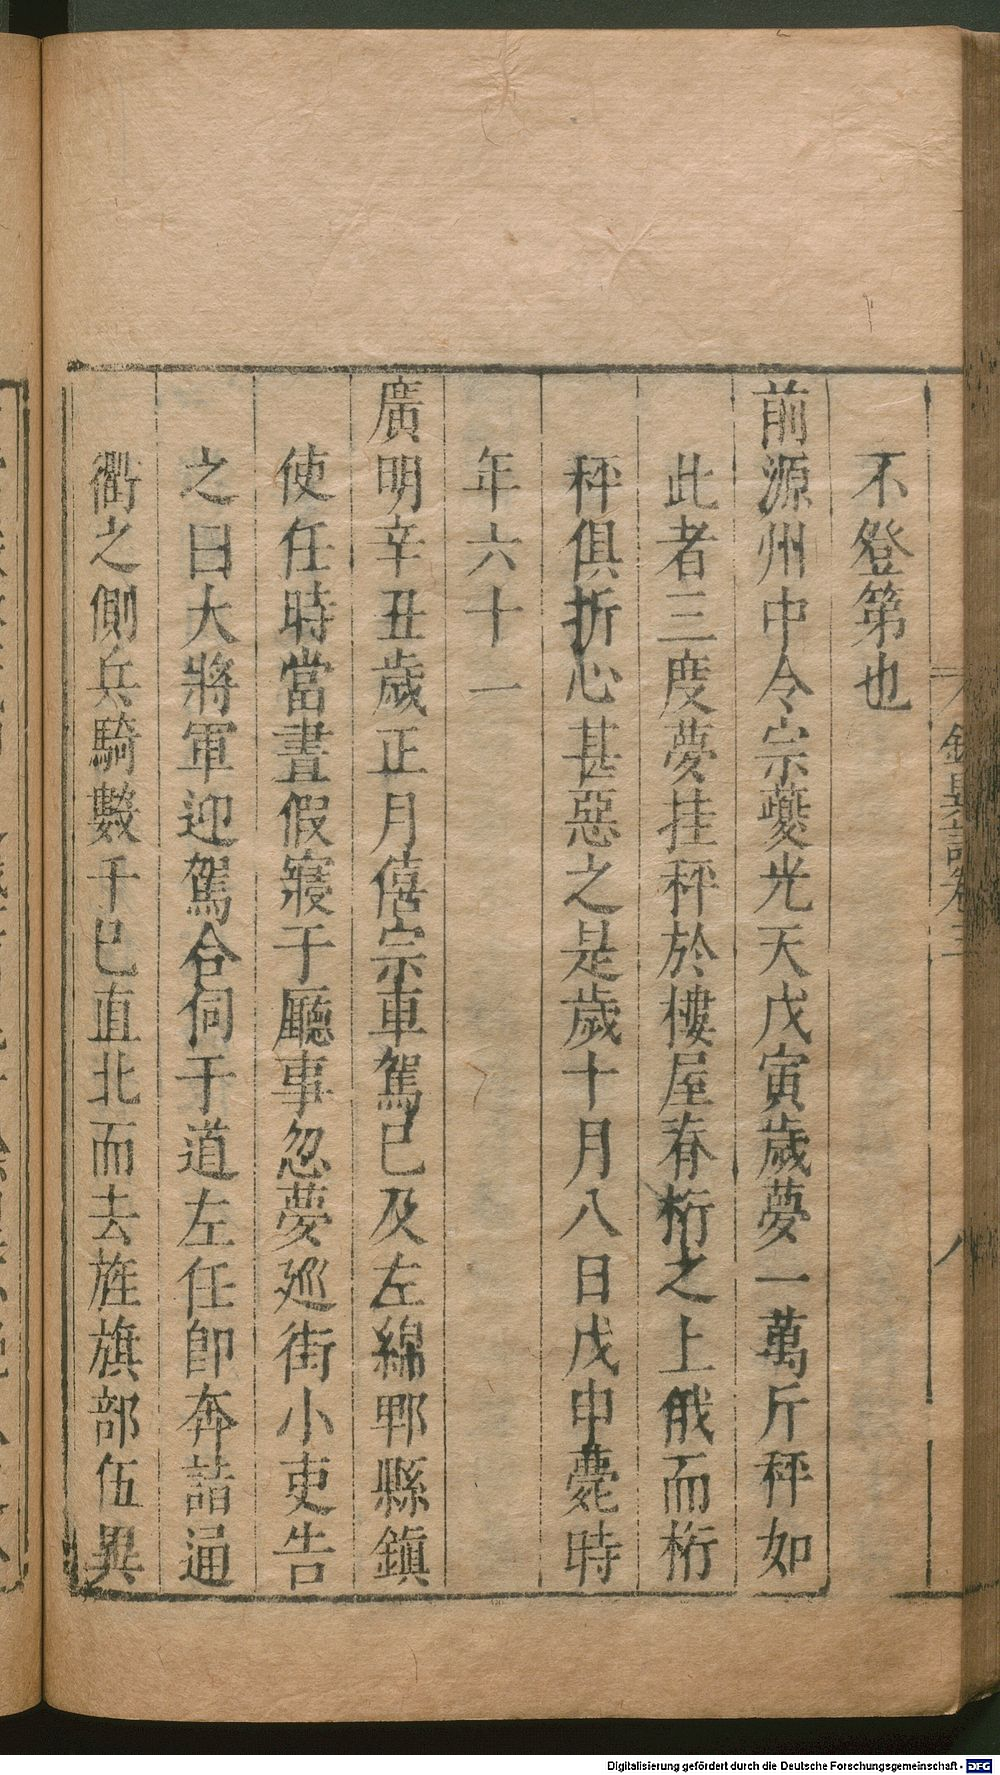 不登第也
前源州中令宗夔光天戊寅歲夢一萬斤秤如
此者三度夢挂秤於樓屋春桁之上俄而桁
秤俱折心甚惡之是歲十月八日戊申薨時
年六十一
廣明辛丑歲正月僖宗車駕已及左綿郫縣鎭
使任時當晝假寢于廳事忽夢廵街小吏告
之曰大將軍迎駕合伺于道左任卽奔詣通
衢之側兵騎數千巳直北而去旌旗部伍異
八
Digitalisierung gefördert durch die Deutsche Forschungsgemeinschaft - DFG